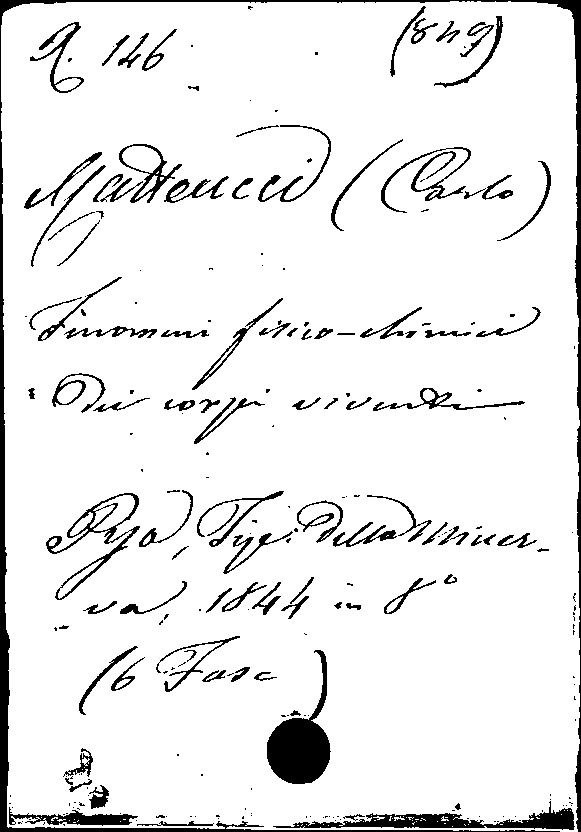 A. 146 (849)
Matteucci (Carlo)
Finomeni fisico-chimici
Dei corpi viventi
Pisa, Tip: Della Miner-
va, 1844 in 8°
(6 Fasc)